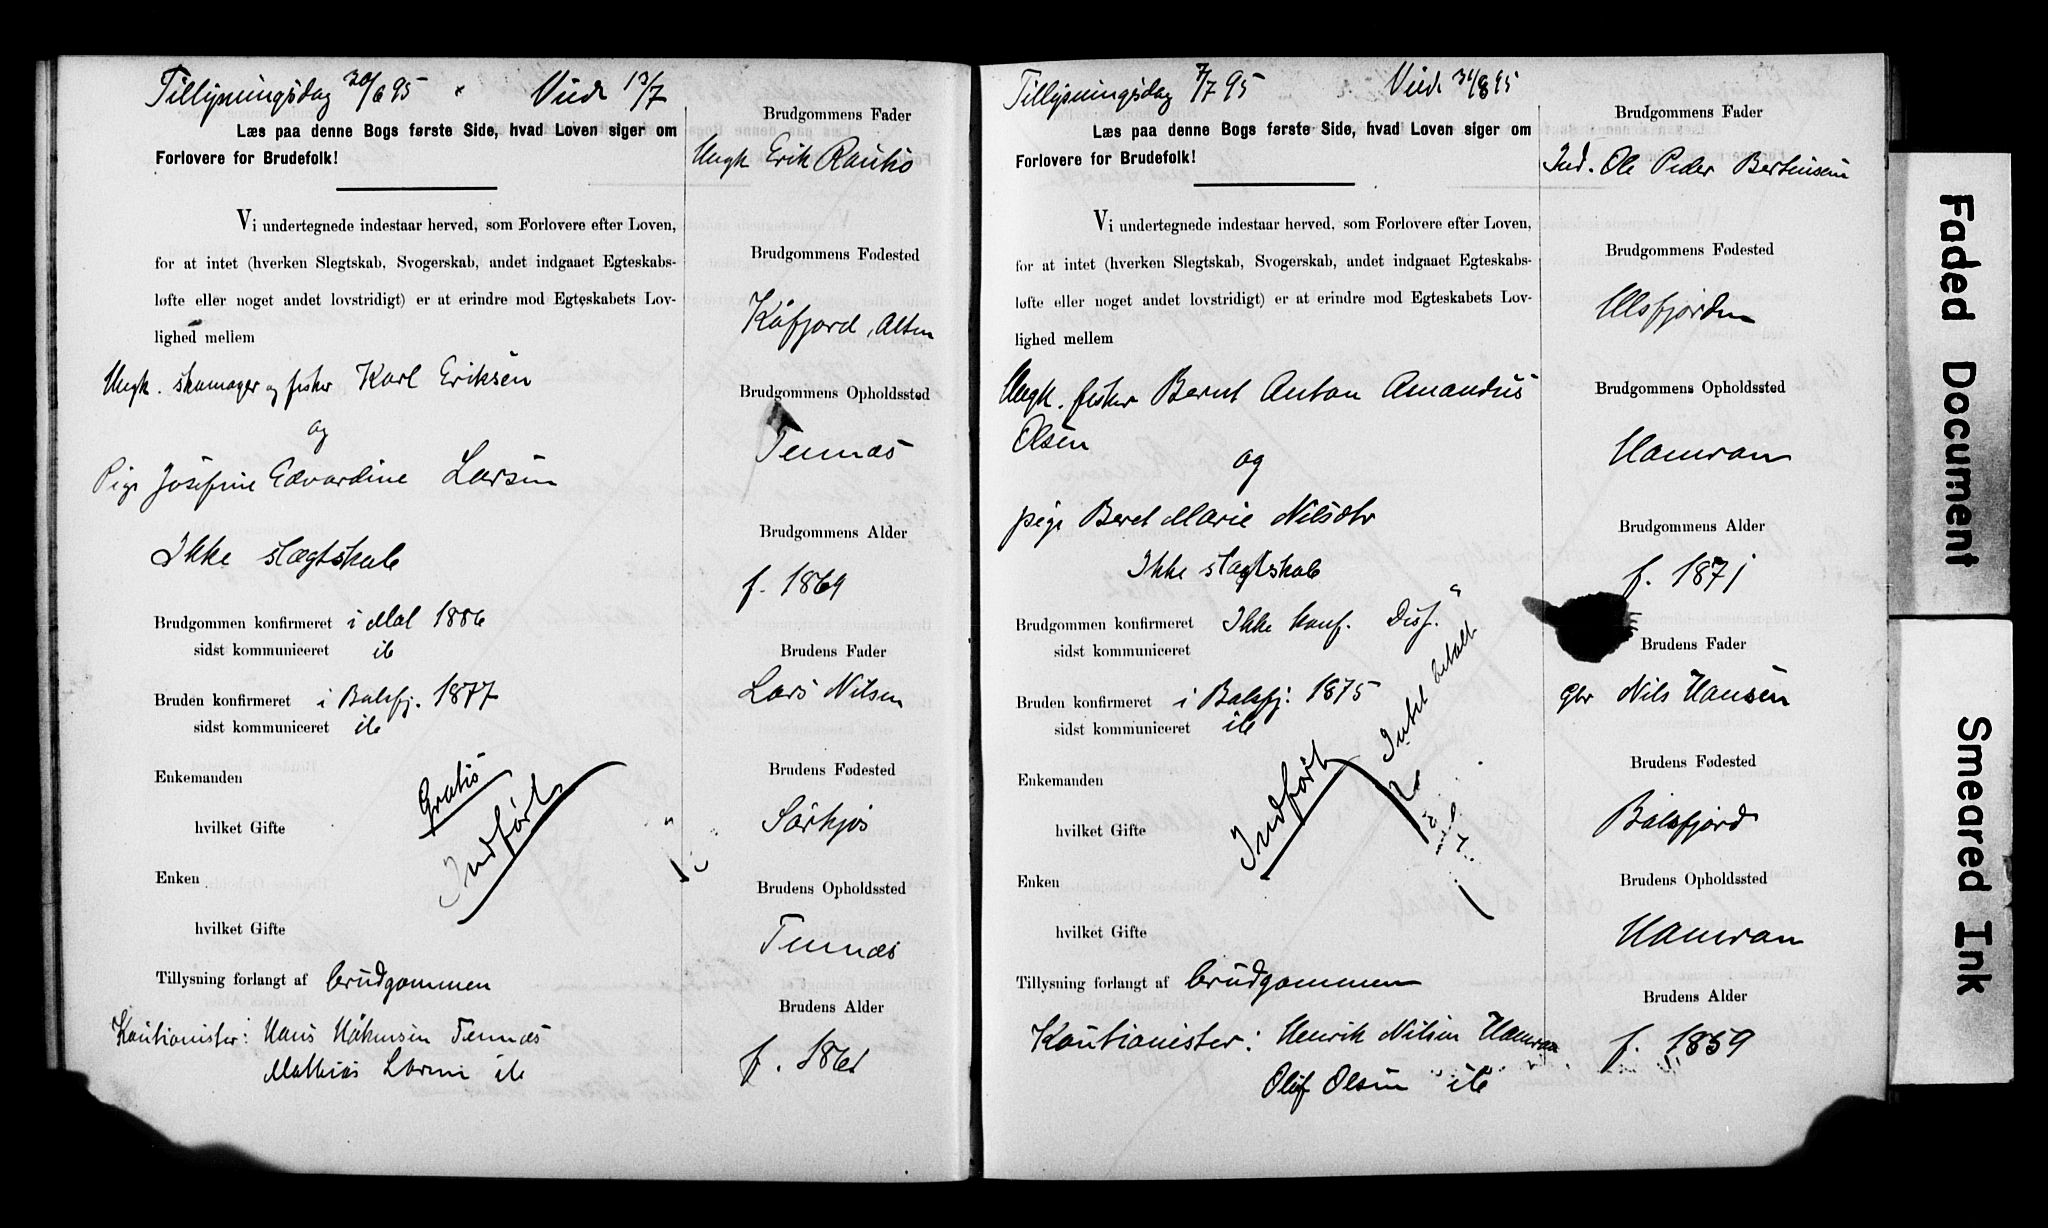 Tillysningsdag 30/6 95 Viede 13/7
Læs paa denne Bogs første Side, hvad Loven siger om
Forlovere for Brudefolk!
Vi undertegnede indestaar herved, som Forlovere efter Loven,
for at intet (hverken Slegtskab, Svogerskab, andet indgaaet Egteskabs-
løfte eller noget andet lovstridigt) er at erindre mod Egteskabets Lov-
lighed mellem
Ungk. skomager og fisker Karl Eriksen
og
Pige Josefine Edvardine Larsen
Ikke slægtskab
Brudgommen konfirmeret i Mal 1886
sidst kommuniceret ib
Bruden konfirmeret i Balsfj. 1877
sidst kommuniceret ib
Enkemanden
hvilket Gifte
Gratis
Indført
Enken
hvilket Gifte
Tillysning forlangt af brudgommen
Kautionister: Hans Håkensen Tennæs
Mathias Larsen ib
Brudgommens Fader
Ungk Erik Rautio
Brudgommens Fødested
Kåfjord, Alten
Brudgommens Opholdssted
Tennæs
Brudgommens Alder
f. 1869
Brudens Fader
Lars Nilsen
Brudens Fødested
Sørkjos
Brudens Opholdssted
Tennæs
Brudens Alder
f. 1861
Tillysningsdag 7/7 95 Viede 31/8 95
Læs paa denne Bogs første Side, hvad Loven siger om
Forlovere for Brudefolk!
Vi undertegnede indestaar herved, som Forlovere efter Loven,
for at intet (hverken Slegtskab, Svogerskab, andet indgaaet Egteskabs-
løfte eller noget andet lovstridigt) er at erindre mod Egteskabets Lov-
lighed mellem
Ungk. fisker Bernt Anton Amandus
Olsen
og
pige Beret Marie Nilsdtr
Ikke slægtskab
Brudgommen konfirmeret Ikke konf. Disp.
sidst kommuniceret
Bruden konfirmeret i Balsfj. 1875
sidst kommuniceret ib
Intet betalt
Enkemanden
hvilket Gifte
Indført
Enken
hvilket Gifte
Tillysning forlangt af brudgommen
Kautionister: Henrik Nilsen Hamran
Olof Olsen ib
Brudgommens Fader
Ind. Ole Peder Bertinsen
Brudgommens Fødested
Ulsfjorden
Brudgommens Opholdssted
Hamran
Brudgommens Alder
f. 1871
Brudens Fader
Gbr Nils Hansen
Brudens Fødested
Balsfjord
Brudens Opholdssted
Hamran
Brudens Alder
f. 1859
Faded Document
Smeared Ink